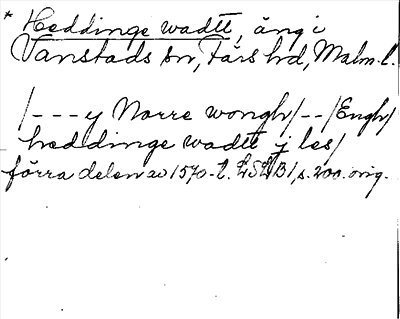 * Heddinge wadtt, äng i
Vanstads sn, Färs hd, Malm. l.
/---y Norre wongh/--/Engh/
heddinge wadtt j les/
förra delen av 1570-t. LSLB 1, s. 200. orig.